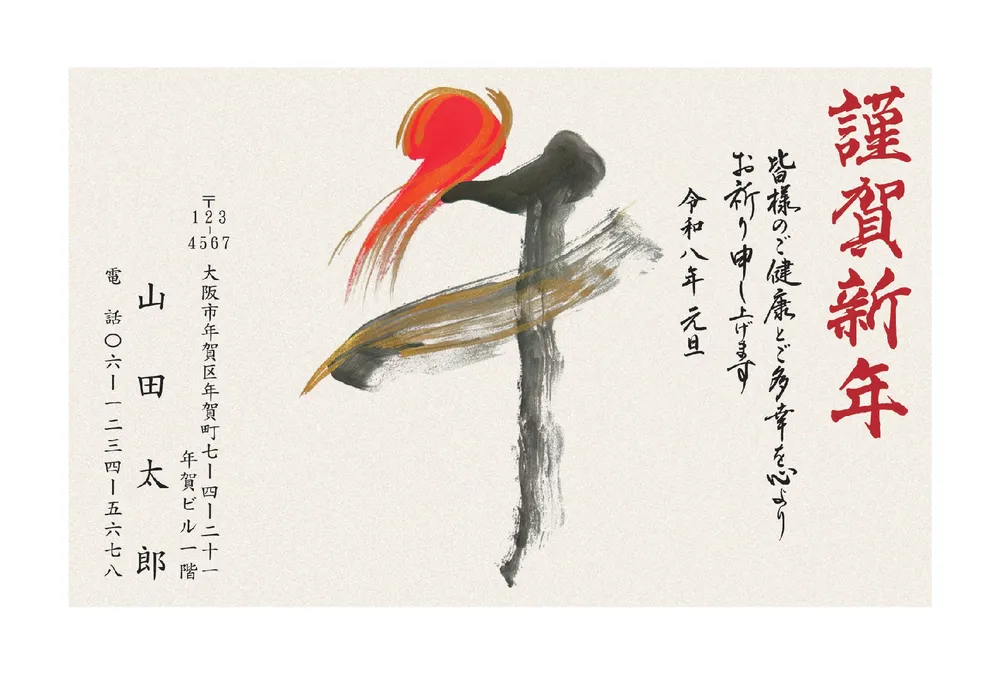 謹賀新年
皆様のご健康とご多幸を心より
お祈り申し上げます
令和八年 元旦
午
〒123-4567
大阪市年賀区年賀町七ー四ー二十一
年賀ビル一階
山田太郎
電話〇六ー一二三四ー五六七八